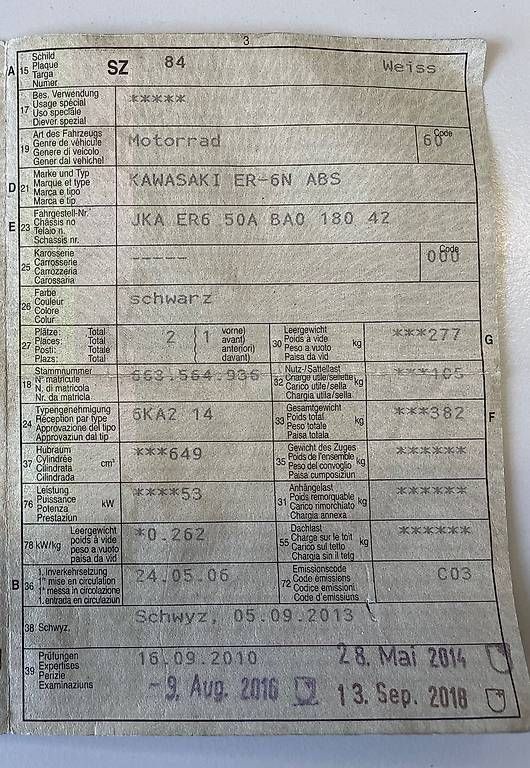 3
A 15 Schild
Plaque
Targa
Numer
SZ 84 Weiss
17 Bes. Verwendung
Usage spécial
Uso speciale
Diever spezial
*****
19 Art des Fahrzeugs
Genre de véhicule
Genere di veicolo
Gener dal vehichel
Motorrad
Code
60
D 21 Marke und Typ
Marque et type
Marca e tipo
Marca e tip
KAWASAKI ER-6N ABS
E 23 Fahrgestell-Nr.
Châssis no
Telaio n.
Schassis nr.
JKA ER6 50A BA0 180 42
25 Karosserie
Carrosserie
Carrozzeria
Carossaria
-----
Code
000
26 Farbe
Couleur
Colore
Colur
schwarz
27 Plätze: Total
Places: Total
Posti: Totale
Plazs: Total
2 { 1 vorne)
avant)
anteriori)
davant)
30 Leergewicht
Poids à vide
Peso a vuoto
Paisa da vid
kg
***277
G
18 Stammnummer
N° matricule
N. di matricola
Nr. da matricla
663.564.936
32 Nutz-/Sattellast
Charge utile/sellette
Carico utile/sella
Chargia utila/sella
kg
***105
24 Typengenehmigung
Réception par type
Approvazione del tipo
Approvaziun dal tip
6KA2 14
33 Gesamtgewicht
Poids total
Peso totale
Paisa totala
kg
***382
F
37 Hubraum
Cylindrée
Cilindrata
Cilindrada
cm³
***649
35 Gewicht des Zuges
Poids de l'ensemble
Peso del convoglio
Paisa cumposiziun
kg
******
76 Leistung
Puissance
Potenza
Prestaziun
kW
****53
31 Anhängelast
Poids remorquable
Carico rimorchiato
Chargia annexa
kg
******
78 kW/kg Leergewicht
poids à vide
peso a vuoto
paisa da vid
*0.262
55 Dachlast
Charge sur le toit
Carico sul tetto
Chargia sin il tetg
kg
******
B 36 1. Inverkehrsetzung
1re mise en circulation
1a messa in circolazione
1. entrada en circulaziun
24.05.06
72 Emissionscode
Code émissions
Codice emissioni
Code d'emissiuns
C03
38 Schwyz,
Schwyz, 05.09.2013
39 Prüfungen
Expertises
Perizie
Examinaziuns
16.09.2010 28. Mai 2014
- 9. Aug. 2016 13. Sep. 2018